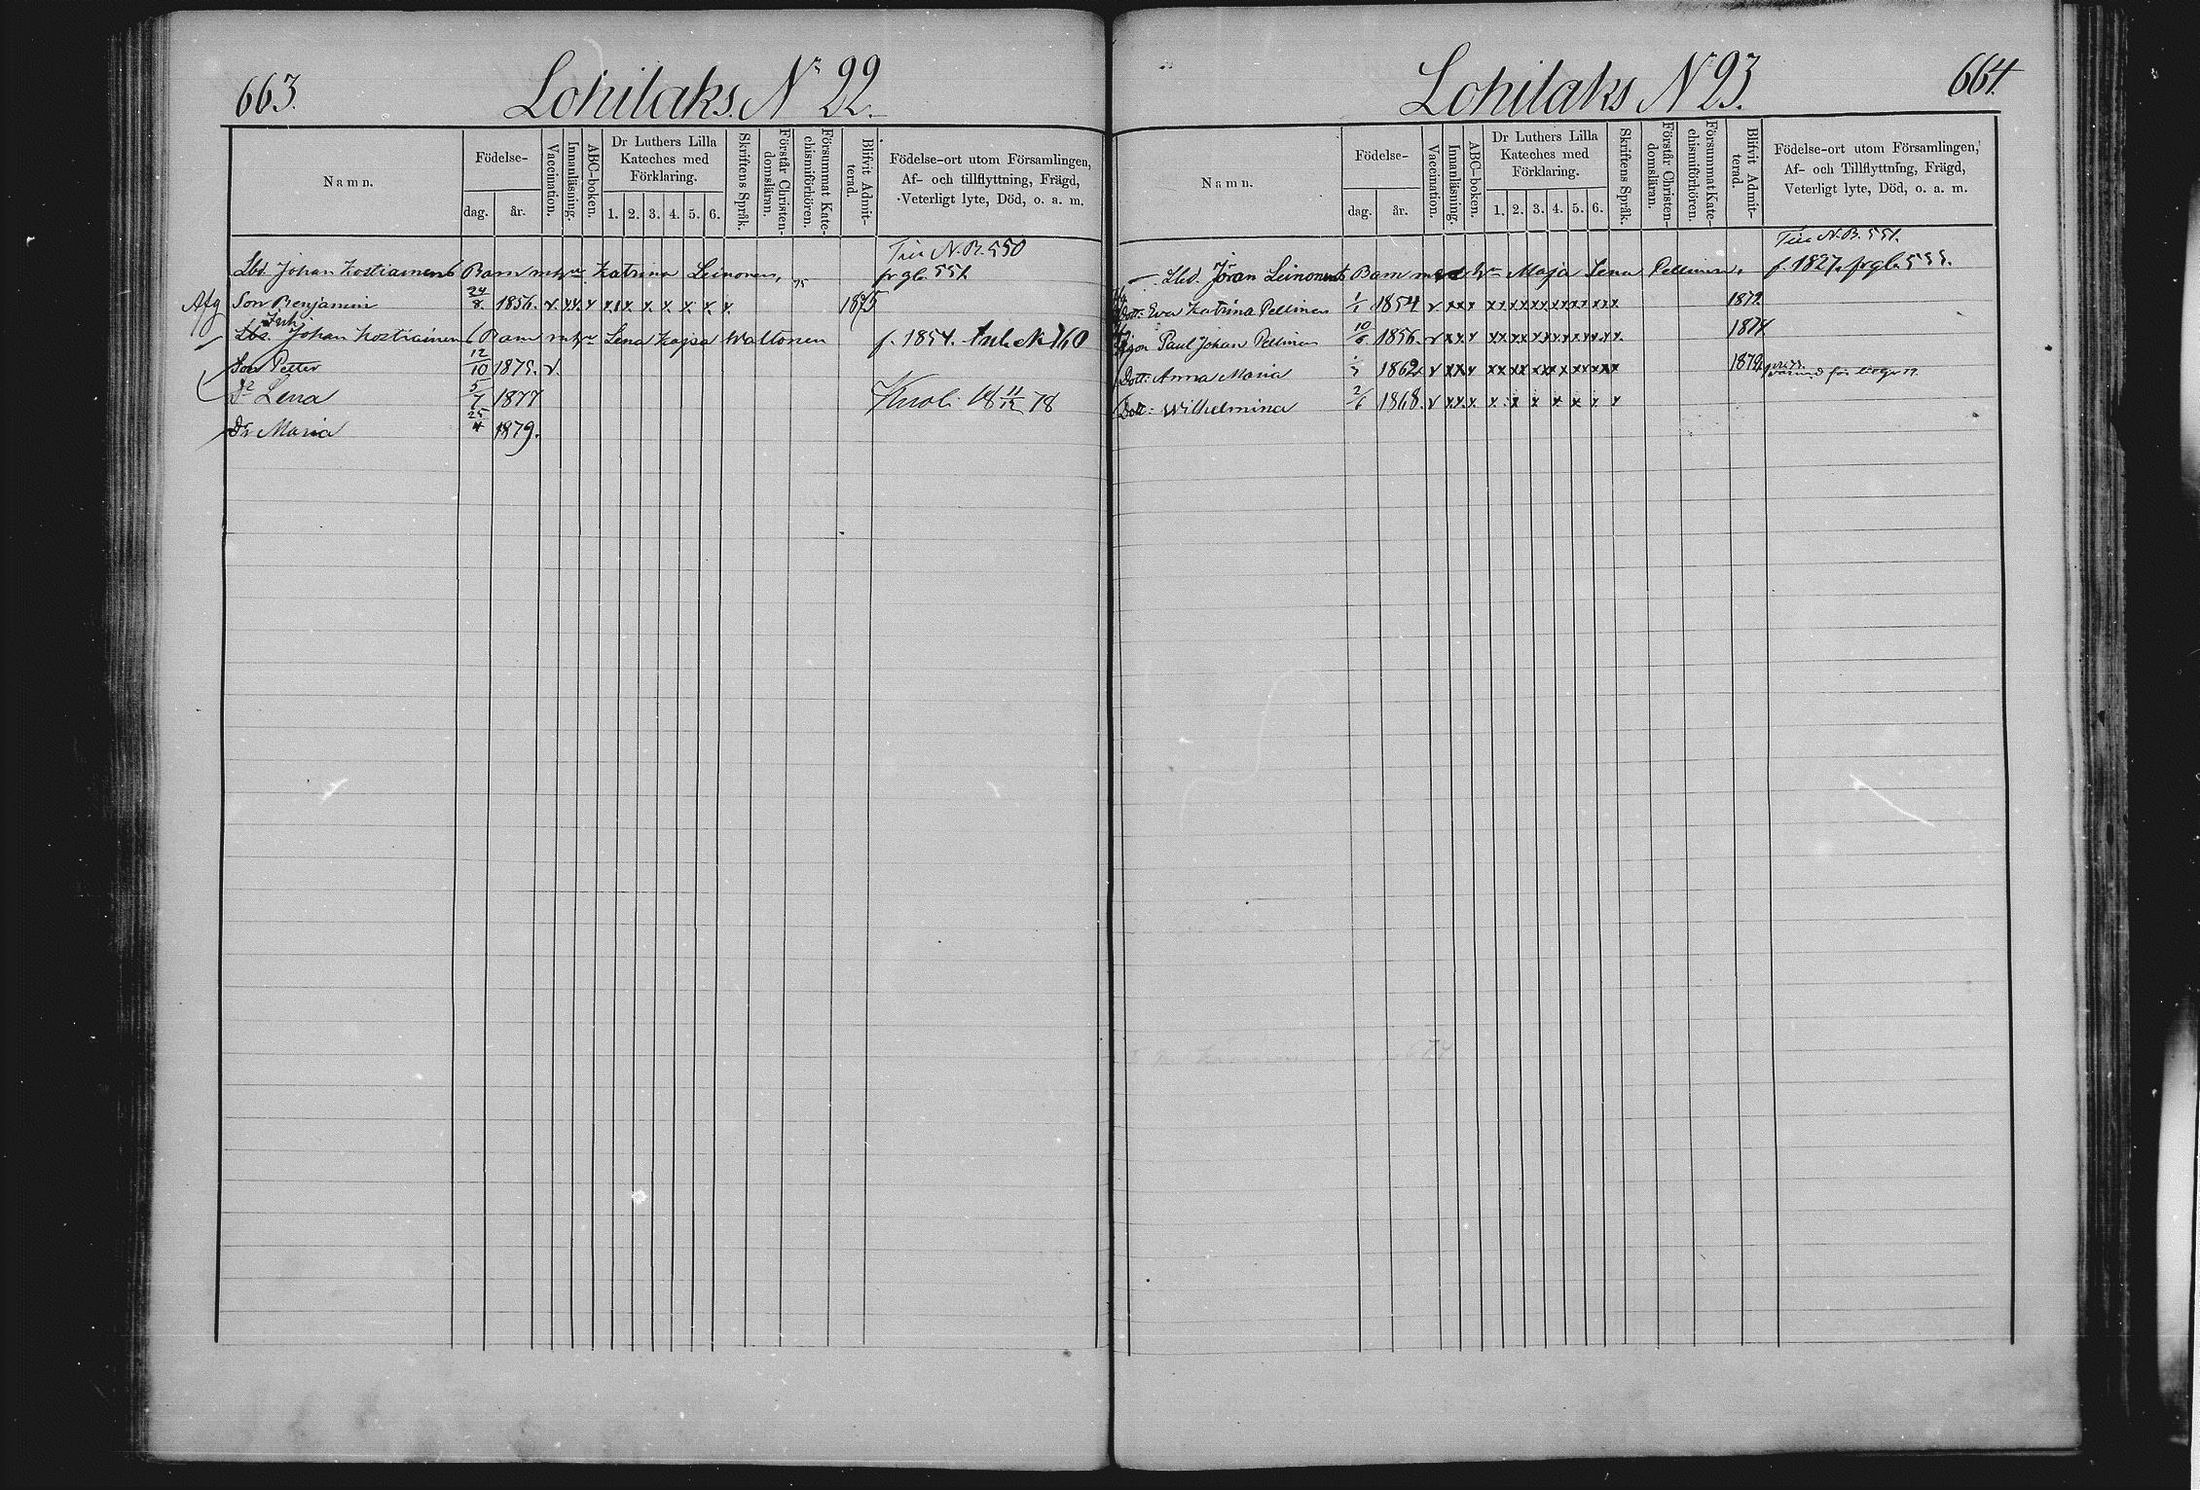 663.
Lohilaks. Nr 22.
Namn.
Födelse-
dag.
år.
Vaccination.
Innanläsning.
ABC-boken.
Dr Luthers Lilla
Kateches med
Förklaring.
1. 2. 3. 4. 5. 6.
Skriftens Språk.
Förstår Christen-
domsläran.
Försummat Kate-
chismiförhören.
Blifvit Admit-
terad.
Födelse-ort utom Församlingen,
Af- och tillflyttning, Frägd,
Veterligt lyte, Död, o. a. m.
N. B. 550
Lbd. Johan Kostiainens Barn m Katrina Leinonen, fr gb. 551.
Afg Son Benjamin 24/8. 1856. v x x x x x x x x x x 1875
Johan Kostiainen Barn m Lena Kajsa Waltonen f. 1854. 760
Son Petter 12/10 1875. v.
Lena 5/7 1877 Kuoli 11/12 78
Maria 25/4 1879.
664.
Lohilaks N 23.
Namn.
Födelse-
dag.
år.
Vaccination.
Innanläsning.
ABC-boken.
Dr Luthers Lilla
Kateches med
Förklaring.
1. 2. 3. 4. 5. 6.
Skriftens Språk.
Förstår Christen-
domsläran.
Försummat Kate-
chismiförhören.
Blifvit Admit-
terad.
Födelse-ort utom Församlingen,
Af- och Tillflyttning, Frägd,
Veterligt lyte, Död, o. a. m.
N. B. 551.
Lbd. Jöran Leinonens Barn m Maja Lena Pellinen, f. 1827, fr gb. 555.
Dott: Eva Katrina Pellinen 1/1 1854 v x x x x x x x x x x
Son Paul Johan Pellinen 10/6 1856. v x x x x x x x x x x 1874
Dott: Anna Maria 1862. v x x x x x x x x x x 1879
Dott: Wilhelmina 2/6 1868. v x x x x x x x x x x